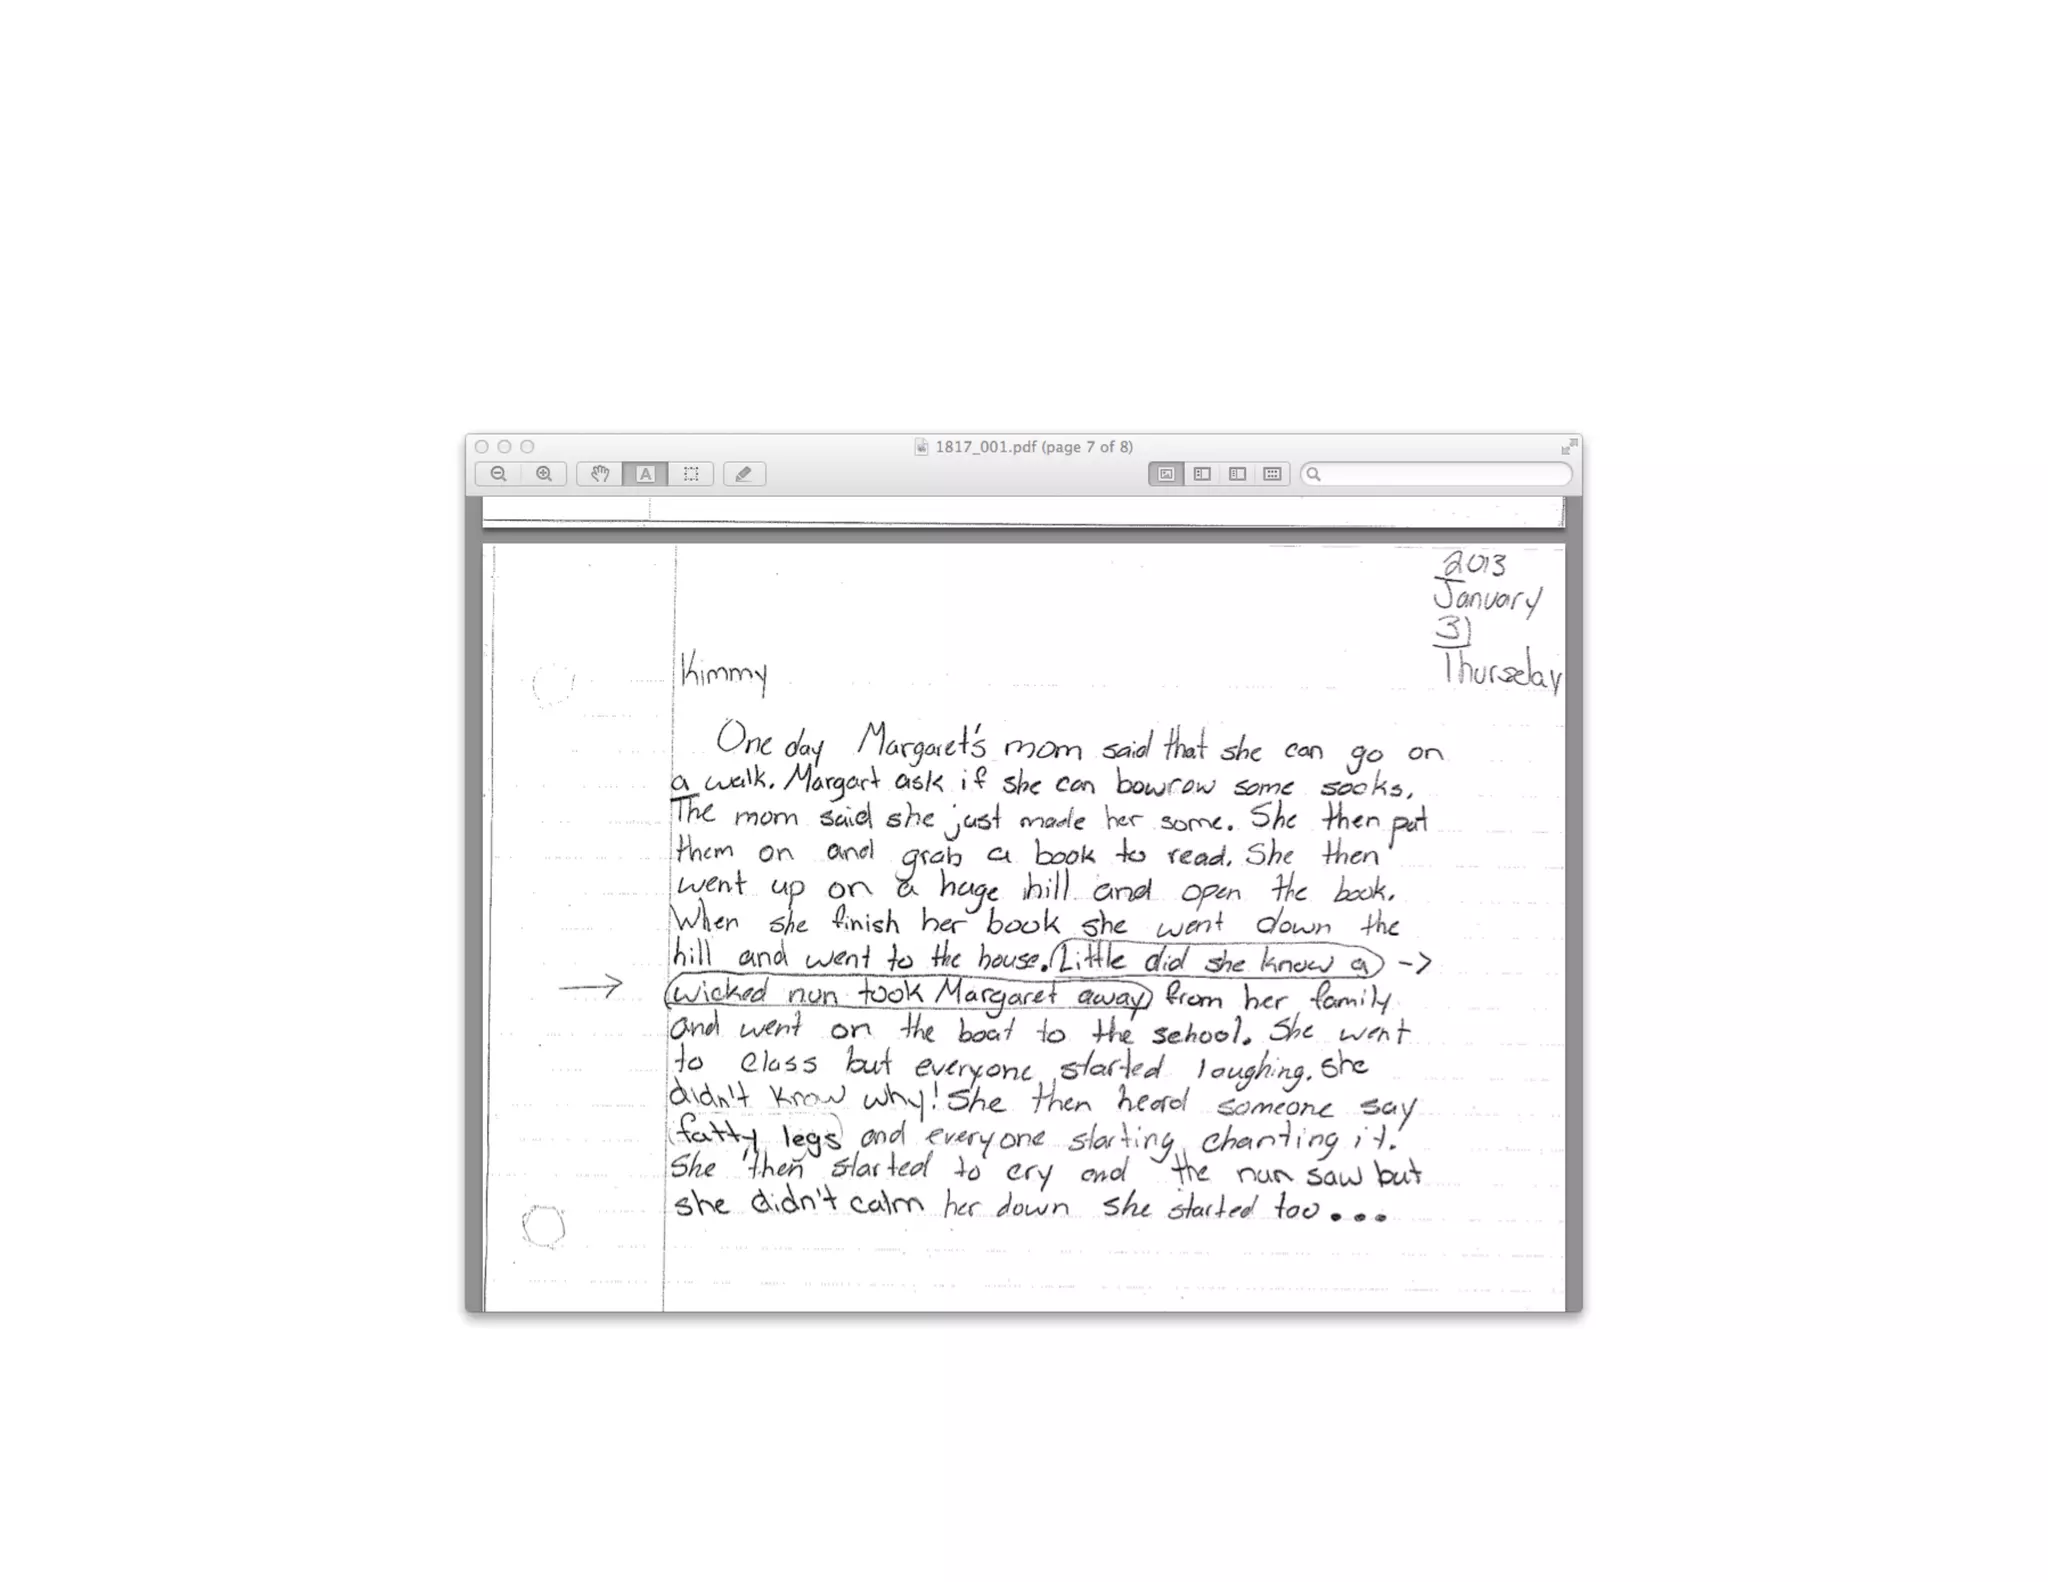 1817_001.pdf (page 7 of 8)
2013
January
31
Thursday
Kimmy
One day Margaret's mom said that she can go on
a walk. Margart ask if she can bowrow some socks.
The mom said she just made her some. She then put
them on and grab a book to read. She then
went up on a huge hill and open the book.
When she finish her book she went down the
hill and went to the house. Little did she know a ->
wicked nun took Margaret away from her family
and went on the boat to the school. She went
to class but everyone started loughing. She
didn't know why! She then heard someone say
fatty legs and everyone starting chanting it.
She then started to cry and the nun saw but
she didn't calm her down she started too...